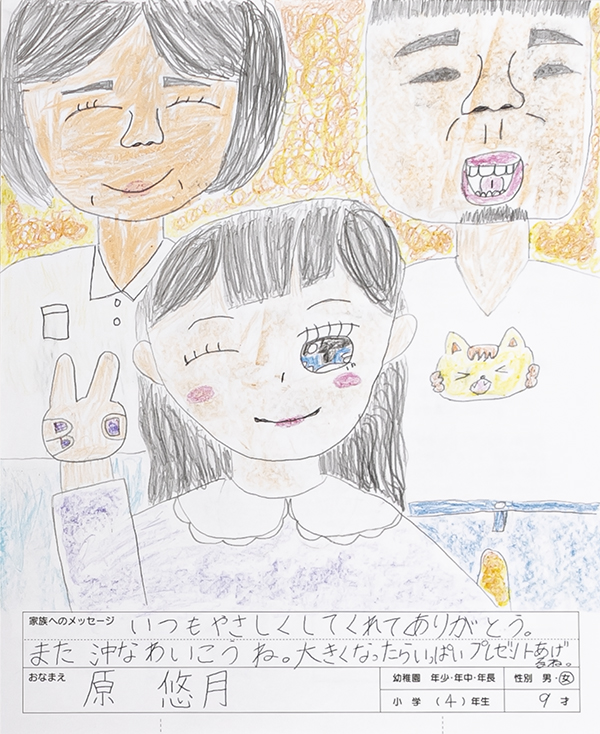 家族へのメッセージ いつもやさしくしてくれてありがとう。
また 沖なわいこうね。大きくなったらいっぱいプレゼントあげ
るね。
おなまえ 原 悠月
幼稚園 年少・年中・年長 性別 男・女
小学 (4)年生 9才